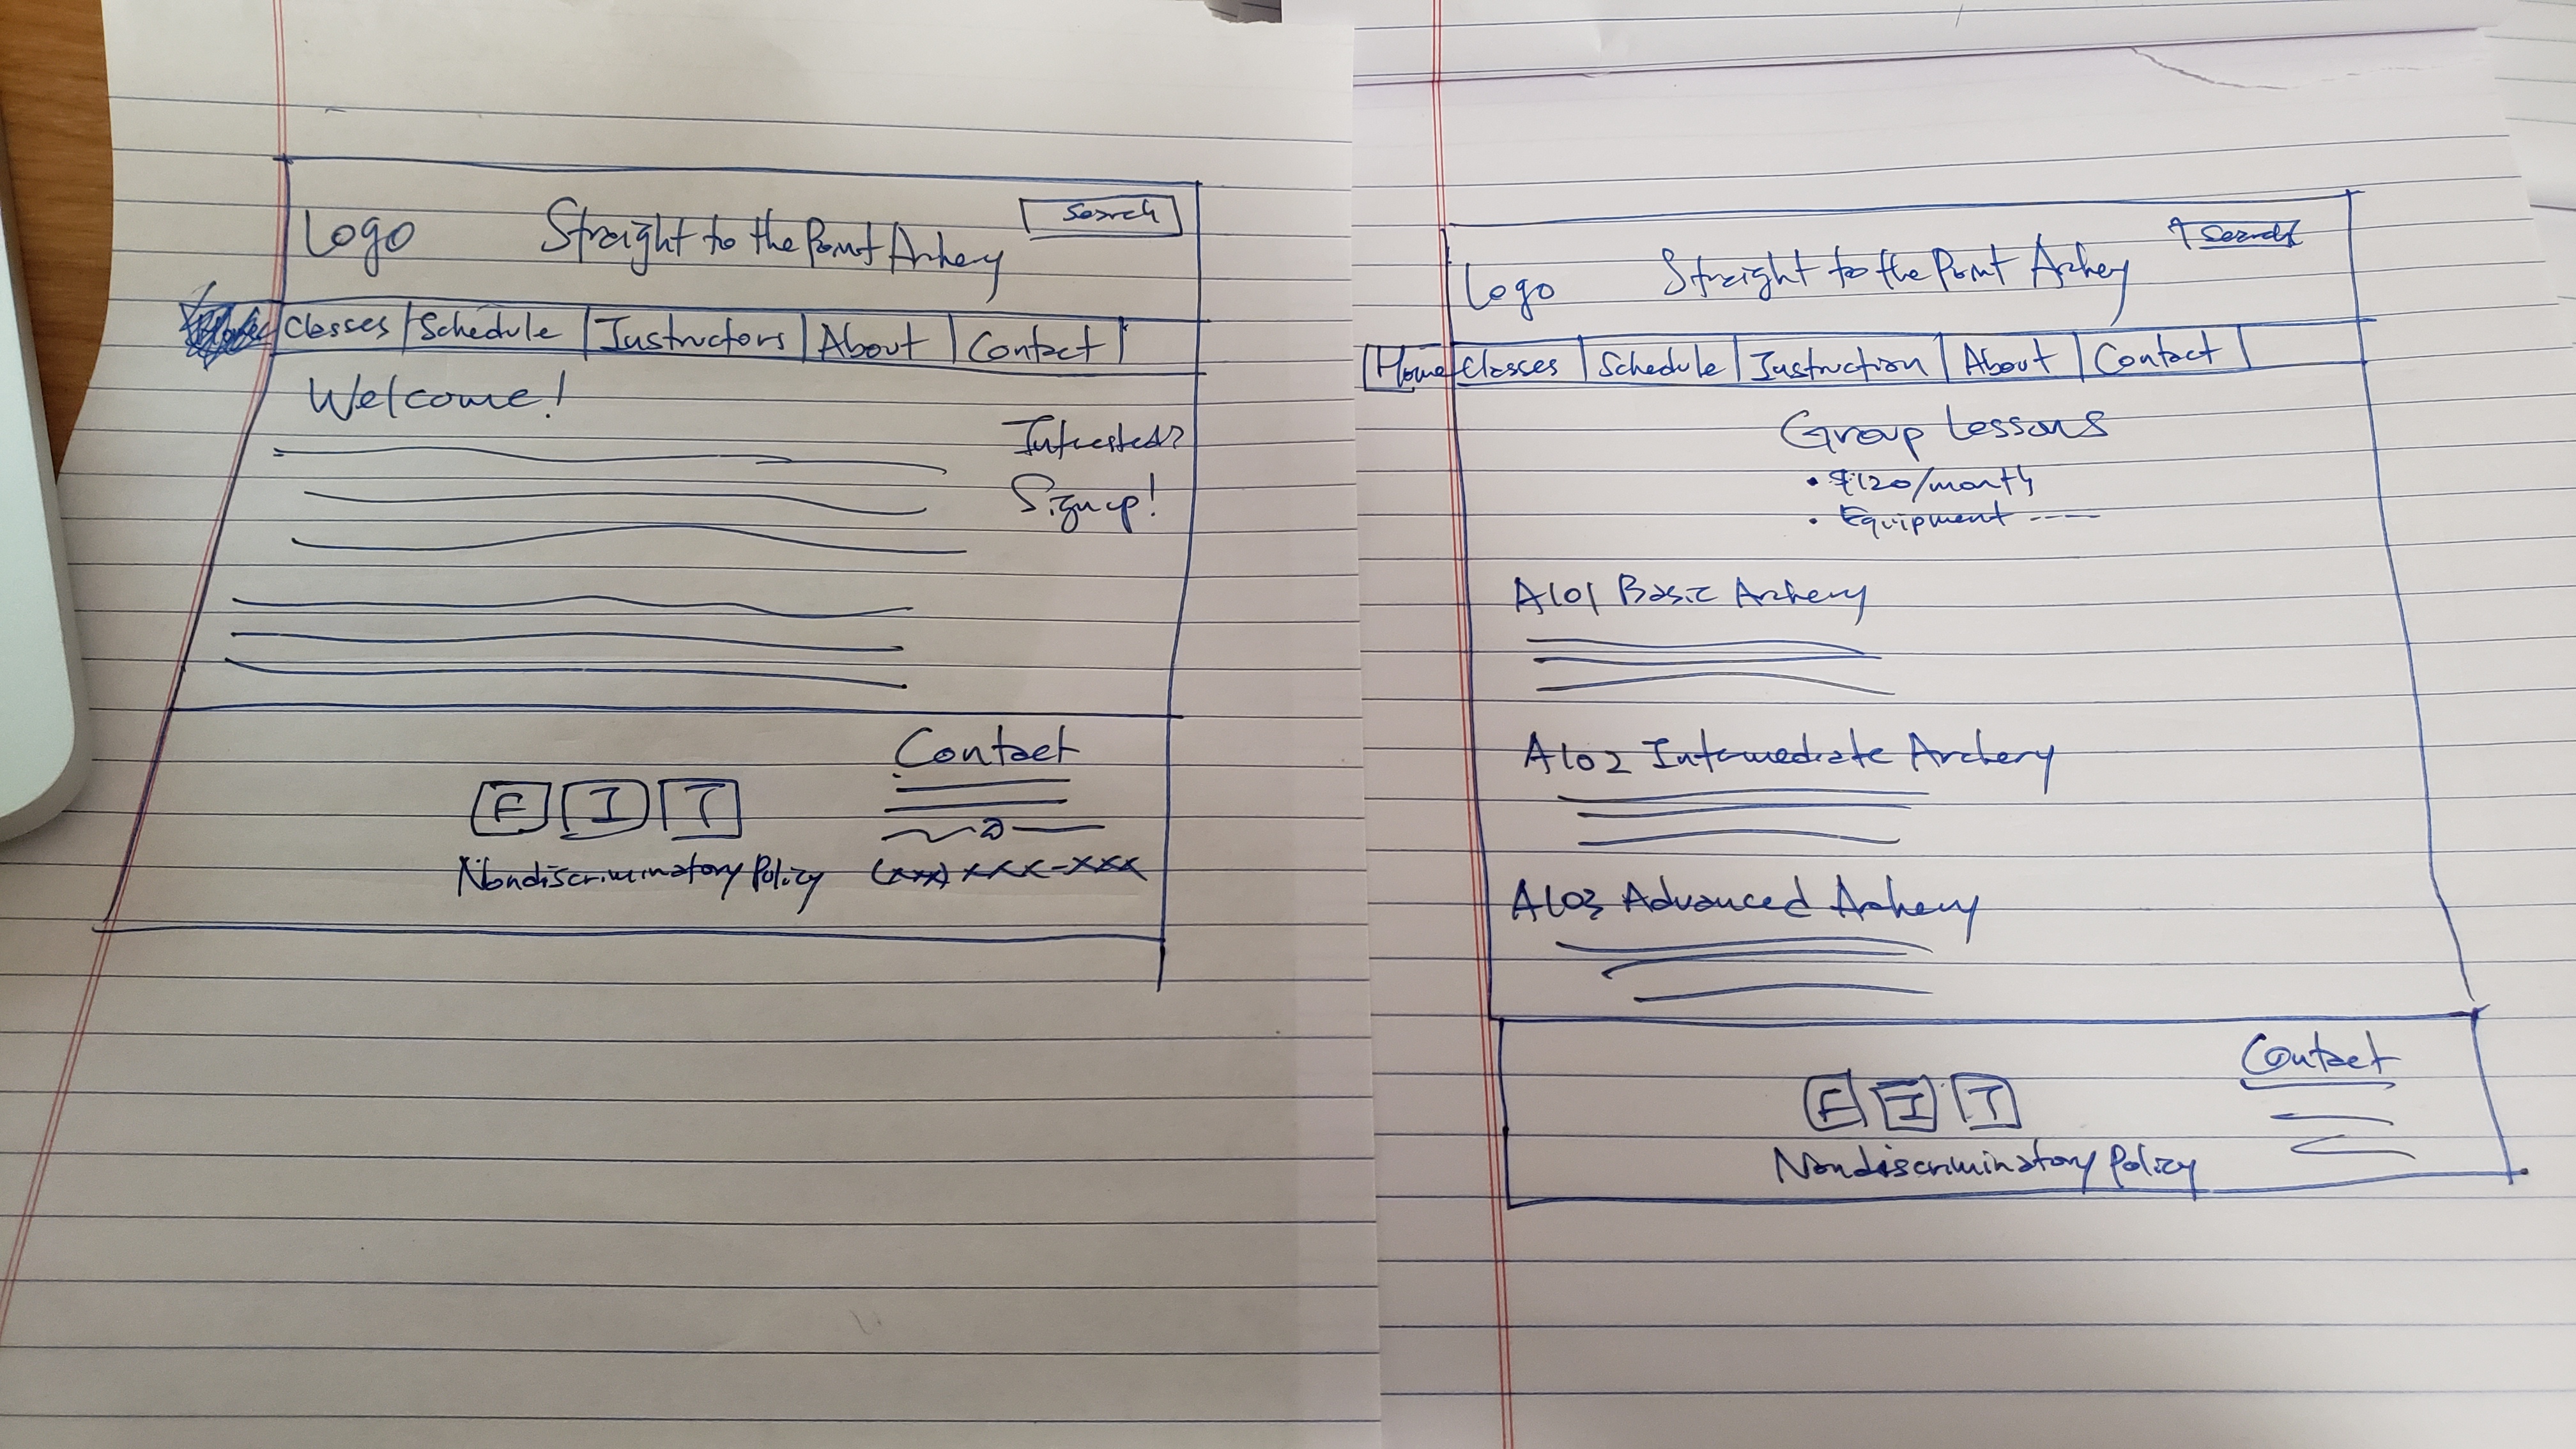 Logo
Straight to the Point Archery
Search
Classes Schedule Instructors About Contact
Welcome!
Interested?
Sign up!
Contact
F I T
Nondiscriminatory Policy (xxx) xxx-xxx
Logo
Straight to the Point Archery
Search
Home Classes Schedule Instruction About Contact
Group Lessons
• $120/month
• Equipment ----
A101 Basic Archery
A102 Intermediate Archery
A103 Advanced Archery
Contact
F I T
Nondiscriminatory Policy